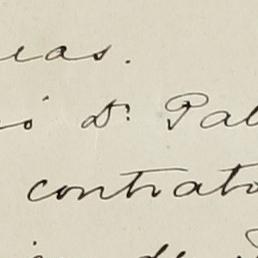 eas.
io Dr. Pal
contrato